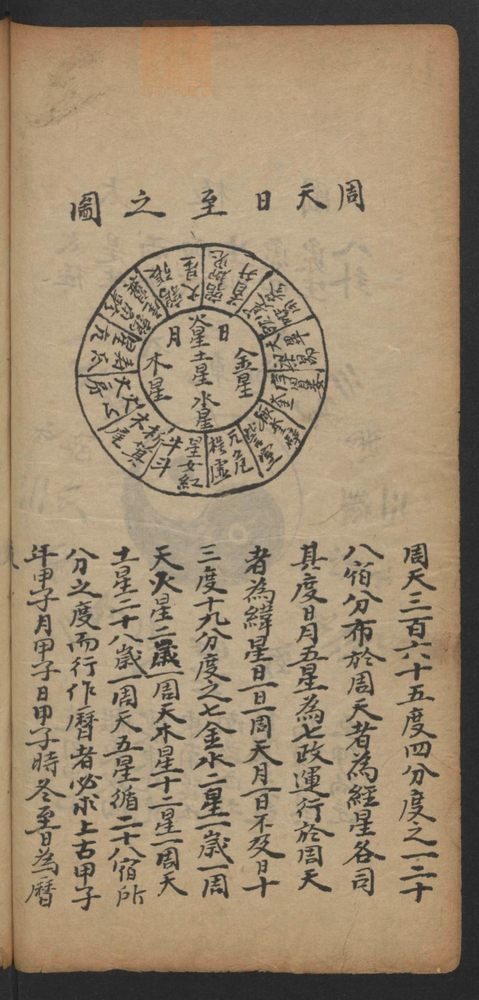 周天日至之圖
日
月
火星
土星
水星
金星
木星
大梁
畢
昴
胃
婁
奎
壁
室
危
元枵
虛
女
星紅
牛
斗
箕
析木
尾
大火
心
房
氐
亢
星
張
井
周天三百六十五度四分度之一二十
八宿分布於周天者為經星各司
其度日月五星為七政運行於周天
者為緯星日一日一周天月一日不及日十
三度十九分度之七金水二星一歲一周
天火星二歲一周天木星十二星一周天
土星二十八歲一周天五星循二十八宿所
分之度而行作曆者必求上古甲子
年甲子月甲子日甲子時冬至日為曆